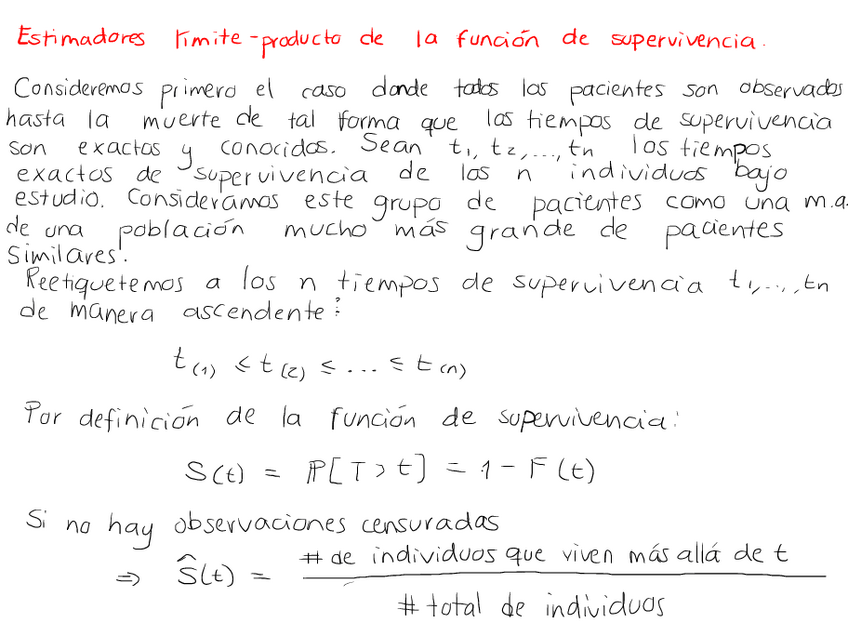 Estimadores límite-producto de la función de supervivencia.
Consideremos primero el caso donde todos los pacientes son observados
hasta la muerte de tal forma que los tiempos de supervivencia
son exactos y conocidos. Sean t₁, t₂, ..., tn los tiempos
exactos de supervivencia de los n individuos bajo
estudio. Consideramos este grupo de pacientes como una m.a.
de una población mucho más grande de pacientes
similares.
Reetiquetemos a los n tiempos de supervivencia t₁, ..., tn
de manera ascendente:
t(1) ≤ t(2) ≤ ... ≤ t(n)
Por definición de la función de supervivencia:
S(t) = ℙ[T > t] = 1 - F(t)
Si no hay observaciones censuradas
# de individuos que viven más allá de t
⇒ Ŝ(t) =
# total de individuos